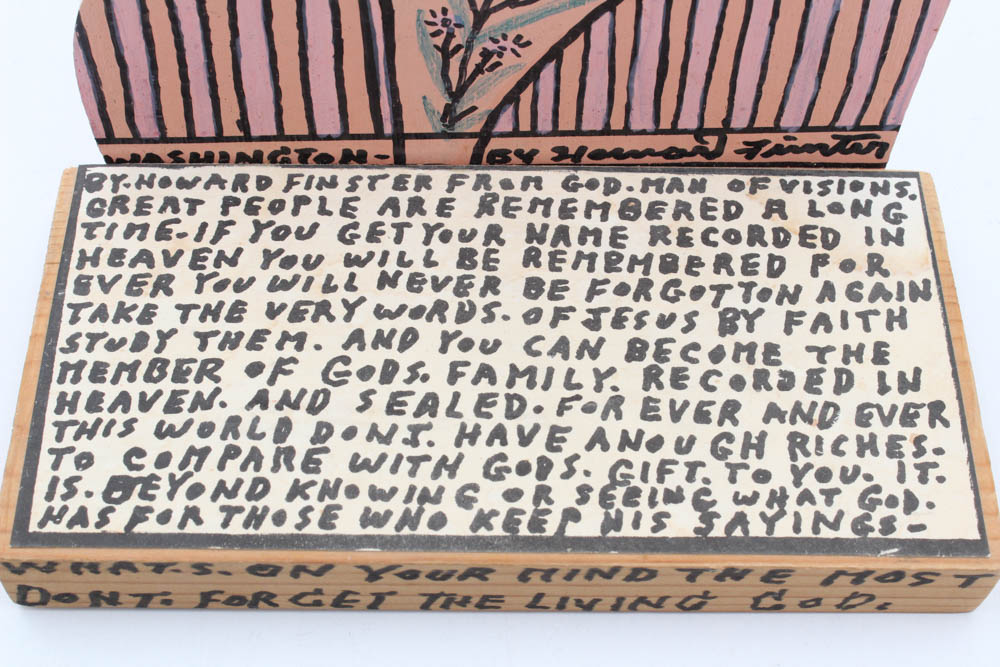 WASHINGTON-
BY Howard Finster
BY. HOWARD FINSTER FROM GOD. MAN OF VISIONS.
GREAT PEOPLE ARE REMEMBERED A LONG
TIME. IF YOU GET YOUR NAME RECORDED IN
HEAVEN YOU WILL BE REMEMBERED FOR
EVER YOU WILL NEVER BE FORGOTTON AGAIN
TAKE THE VERY WORDS. OF JESUS BY FAITH
STUDY THEM. AND YOU CAN BECOME THE
MEMBER OF GODS. FAMILY. RECORDED IN
HEAVEN. AND SEALED. FOR EVER AND EVER
THIS WORLD DONT. HAVE ANOUGH RICHES-
TO COMPARE WITH GODS. GIFT. TO YOU. IT.
IS. BEYOND KNOWING OR SEEING WHAT GOD.
HAS FOR THOSE WHO KEEP HIS SAYINGS-
WHAT.S. ON YOUR MIND THE MOST
DONT. FORGET THE LIVING GOD.